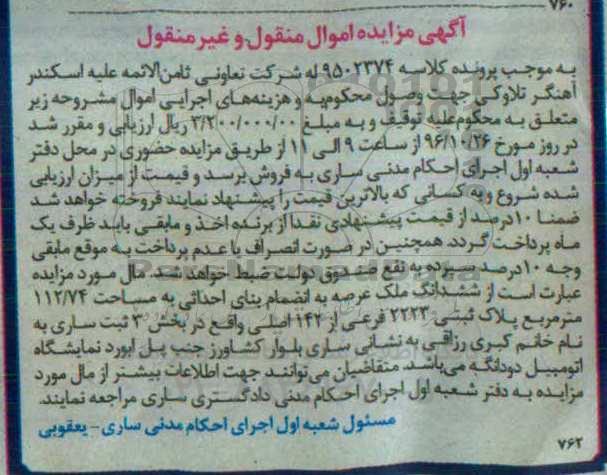 ۷۶۰
آگهی مزایده اموال منقول و غیر منقول
به موجب پرونده کلاسه ۹۵۰۲۳۷۴ له شرکت تعاونی ثامن‌الائمه علیه اسکندر
آهنگر تلاوکی جهت وصول محکوم‌به و هزینه‌های اجرایی اموال مشروحه زیر
متعلق به محکوم‌علیه توقیف و به مبلغ ۳/۲۰۰/۰۰۰/۰۰۰ ریال ارزیابی و مقرر شد
در روز مورخ ۹۶/۱۰/۲۶ از ساعت ۹ الی ۱۱ از طریق مزایده حضوری در محل دفتر
شعبه اول اجرای احکام مدنی ساری به فروش برسد و قیمت از میزان ارزیابی
شده شروع و به کسانی که بالاترین قیمت را پیشنهاد نمایند فروخته خواهد شد
ضمنا ۱۰درصد از قیمت پیشنهادی نقدا از برنده اخذ و مابقی باید ظرف یک
ماه پرداخت گردد. همچنین در صورت انصراف یا عدم پرداخت به موقع مابقی
وجه ۱۰درصد سپرده به نفع صندوق دولت ضبط خواهد شد. مال مورد مزایده
عبارت است از ششدانگ ملک عرصه به انضمام بنای احداثی به مساحت ۱۱۲/۷۴
مترمربع پلاک ثبتی ۲۲۲۳ فرعی از ۱۴۲ اصلی واقع در بخش ۳ ثبت ساری به
نام خانم کبری رزاقی به نشانی ساری بلوار کشاورز جنب پل ابورد نمایشگاه
اتومبیل دودانگه می‌باشد. متقاضیان می‌توانند جهت اطلاعات بیشتر از مال مورد
مزایده به دفتر شعبه اول اجرای احکام مدنی دادگستری ساری مراجعه نمایند.
مسئول شعبه اول اجرای احکام مدنی ساری - یعقوبی
۷۶۲